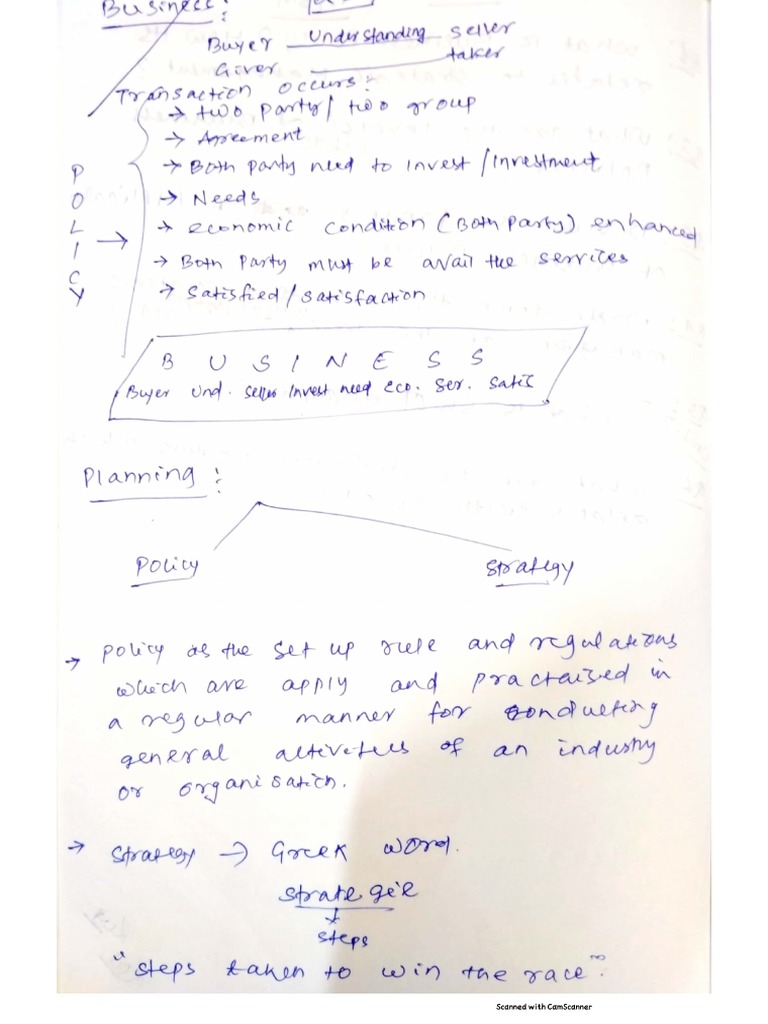 Business :
Buyer Understanding seller
Giver taker
Transaction occurs :
→ two party / two group
→ Agreement
→ Both party need to invest / investment
→ Needs
→ economic condition (Both Party) enhanced
→ Both Party must be avail the services
→ Satisfied / satisfaction
POLICY →
B U S I N E S S
Buyer Und. seller invest need eco. Ser. Satis
Planning :
Policy Strategy
→ Policy is the set up rule and regulations
which are apply and practaised in
a regular manner for conducting
general activetees of an industry
or organisation.
→ Strategy → Greek word.
strategie
steps
"steps taken to win the race".
Scanned with CamScanner